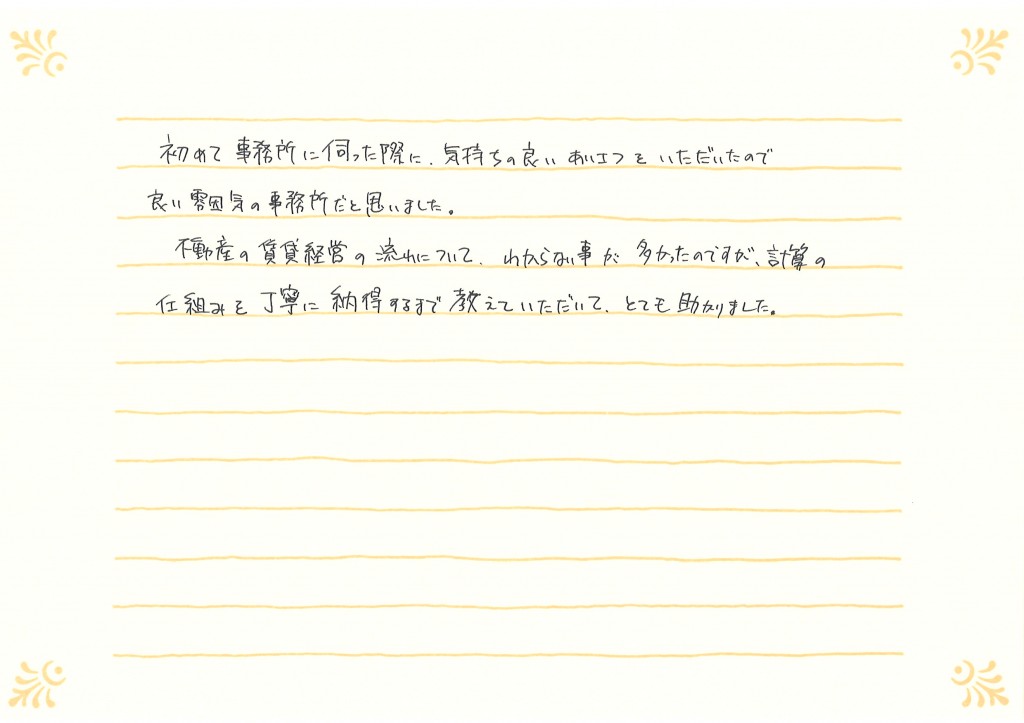 初めて事務所に伺った際に、気持ちの良いあいさつをいただいたので
良い雰囲気の事務所だと思いました。
不動産の賃貸経営の流れについて、わからない事が多かったのですが、計算の
仕組みを丁寧に納得するまで教えていただいて、とても助かりました。